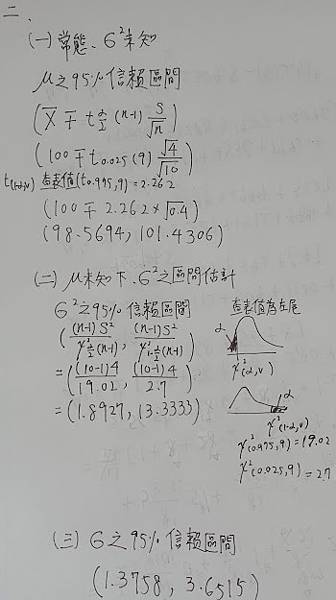 二、
(一) 常態、σ²未知
μ之95%信賴區間
(X̄ ∓ t α/2 (n-1) S/√n)
(100 ∓ t0.025(9) √4/√10)
t(1-α,v) 查表值(t0.975,9)=2.262
(100 ∓ 2.262×√0.4)
(98.5694, 101.4306)
(二) μ未知下、σ²之區間估計
σ²之95%信賴區間
查表值為左尾
((n-1)S²/χ²α/2(n-1), (n-1)S²/χ²1-α/2(n-1))
α
χ²(α,v)
=((10-1)4/19.02, (10-1)4/2.7)
α
χ²(1-α,v)
=(1.8927, 13.3333)
χ²(0.975,9)=19.02
χ²(0.025,9)=2.7
(三) σ之95%信賴區間
(1.3758, 3.6515)